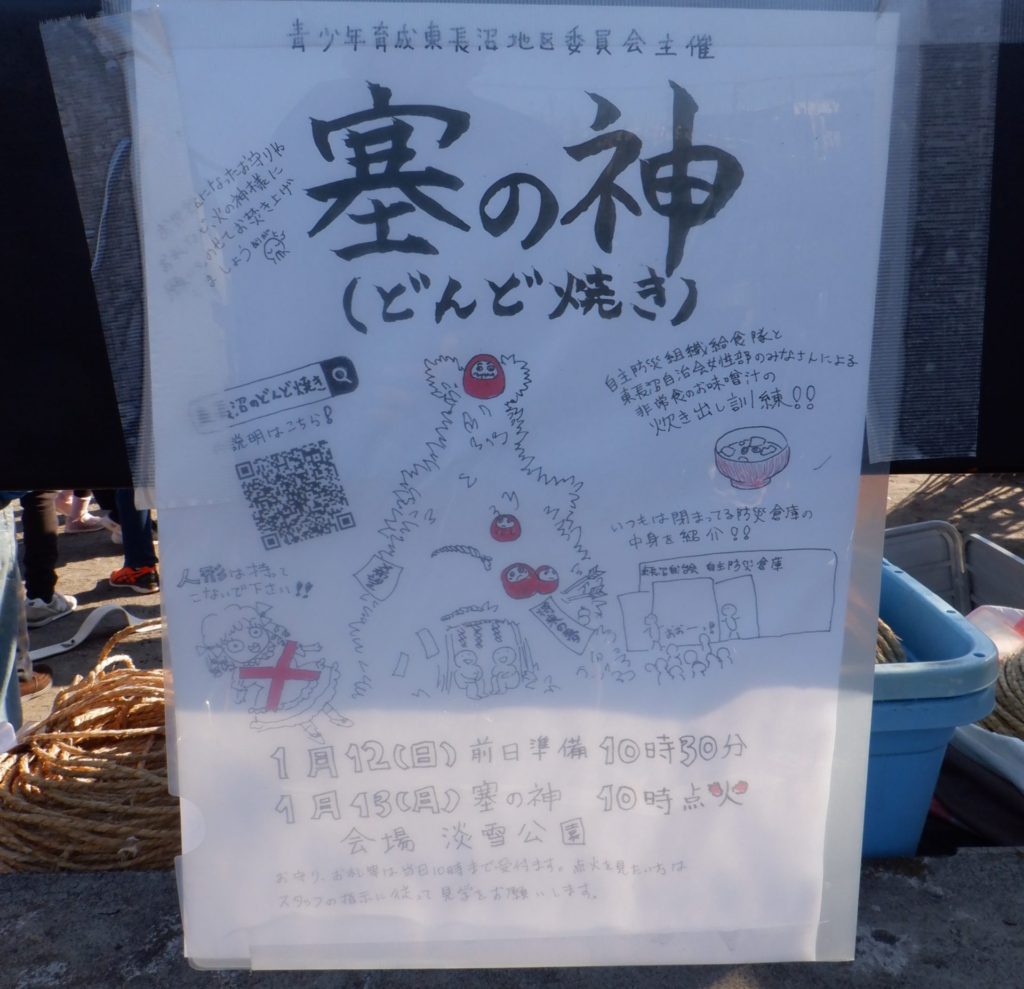 青少年育成東長沼地区委員会主催
塞の神
(どんど焼き)
になったお守りや
火の神様に
のせてお焚き上げ
ましょう
沼のどんど焼き
説明はこちら!
人形は持って
こないで下さい!!
自主防災組織給食隊と
東長沼自治会女性部のみなさんによる
非常食のお味噌汁の
炊き出し訓練!!
いつもは閉まってる防災倉庫の
中身を紹介!!
東長沼自治会 自主防災倉庫
おおー
1月12(日) 前日準備 10時30分
1月13(月) 塞の神 10時点火
会場 淡雪公園
お守り、お札等は当日10時まで受付ます。点火を見たい方は
スタッフの指示に従って見学をお願いします。